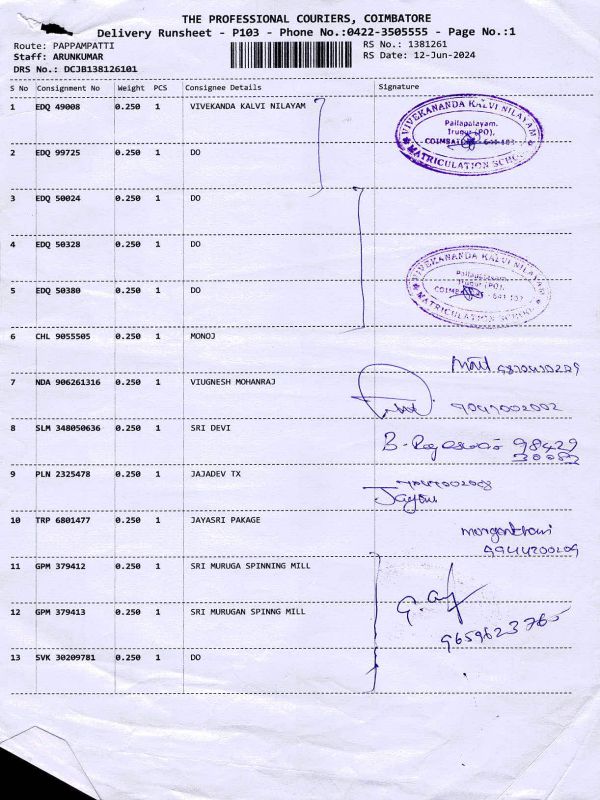 THE PROFESSIONAL COURIERS, COIMBATORE
Delivery Runsheet - P103 - Phone No.:0422-3505555 - Page No.:1
Route: PAPPAMPATTI
RS No.: 1381261
Staff: ARUNKUMAR
RS Date: 12-Jun-2024
DRS No.: DCJB138126101
S No Consignment No Weight PCS Consignee Details Signature
1 EDQ 49008 0.250 1 VIVEKANDA KALVI NILAYAM
VIVEKANANDA KALVI NILAYAM
Pallapalayam.
Irugur (PO).
COIMBATORE - 641 103
MATRICULATION SCHOOL
2 EDQ 99725 0.250 1 DO
3 EDQ 50024 0.250 1 DO
4 EDQ 50328 0.250 1 DO
VIVEKANANDA KALVI NILAYAM
Pallapalayam.
Irugur (PO).
COIMBATORE - 641 103
MATRICULATION SCHOOL
5 EDQ 50380 0.250 1 DO
6 CHL 9055505 0.250 1 MONOJ
7 NDA 906261316 0.250 1 VIUGNESH MOHANRAJ
9047002002
8 SLM 348050636 0.250 1 SRI DEVI
98429
30082
9 PLN 2325478 0.250 1 JAJADEV TX
10 TRP 6801477 0.250 1 JAYASRI PAKAGE
9944200209
11 GPM 379412 0.250 1 SRI MURUGA SPINNING MILL
12 GPM 379413 0.250 1 SRI MURUGAN SPINNG MILL
9659623765
13 SVK 30209781 0.250 1 DO